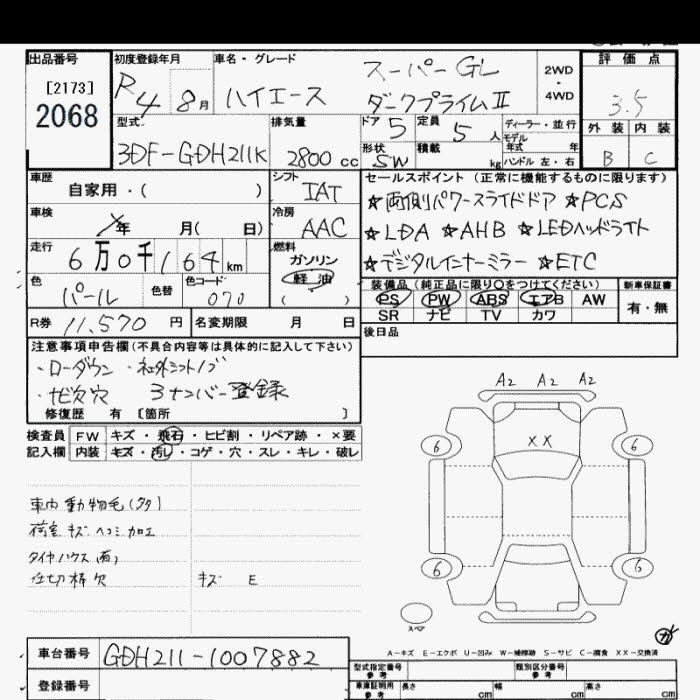 出品番号
[2173]
2068
初度登録年月
R4 8月
車名・グレード
スーパーGL
ハイエース ダークプライムⅡ
2WD
・
4WD
評価点
3.5
外装 内装
B C
型式
3DF-GDH211K
排気量
2800 cc
ドア 5
定員 5 人
形状 SW
積載 kg
ディーラー・並行
モデル
年式 年
ハンドル 左・右
車歴
自家用・( )
シフト
IAT
車検
年 月( 日)
冷房
AAC
走行
6万0千164 km
燃料
ガソリン
軽油
( )
色
パール
色替
色コード
070
R券 11,570 円
名変期限 月 日
セールスポイント(正常に機能するものに限ります)
☆両側パワースライドドア ☆PCS
☆LDA ☆AHB ☆LEDヘッドライト
☆デジタルインナーミラー ☆ETC
装備品(純正品に限り○をつけてください)
PS PW ABS エアB AW
SR ナビ TV カワ
新車保証書
有・無
後日品
注意事項申告欄(不具合内容等は具体的に記入して下さい)
・ローダウン ・社外シフトノブ
・ナビ欠穴 3ナンバー登録
修復歴 有 〔箇所 〕
検査員
記入欄
FW キズ・飛石・ヒビ割・リペア跡・×要
内装 キズ・汚れ・コゲ・穴・スレ・キレ・破レ
車内動物毛(多々)
荷室キズ ヘコミ 加工
タイヤハウス
仕切棒欠 キズ E
A2 A2 A2
XX
6 6
6 6
スペア
A-キズ E-エクボ U-凹み W-補修跡 S-サビ C-腐食 XX-交換済
車台番号 GDH211-1007882
登録番号
型式指定番号
参考
類別区分番号
参考
車庫証明用
参考
長さ cm
幅 cm
高さ cm